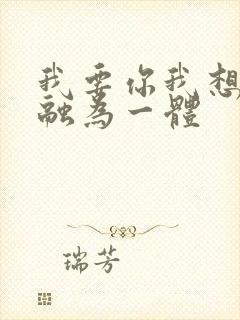 我要你我想
融為一體
瑞芳